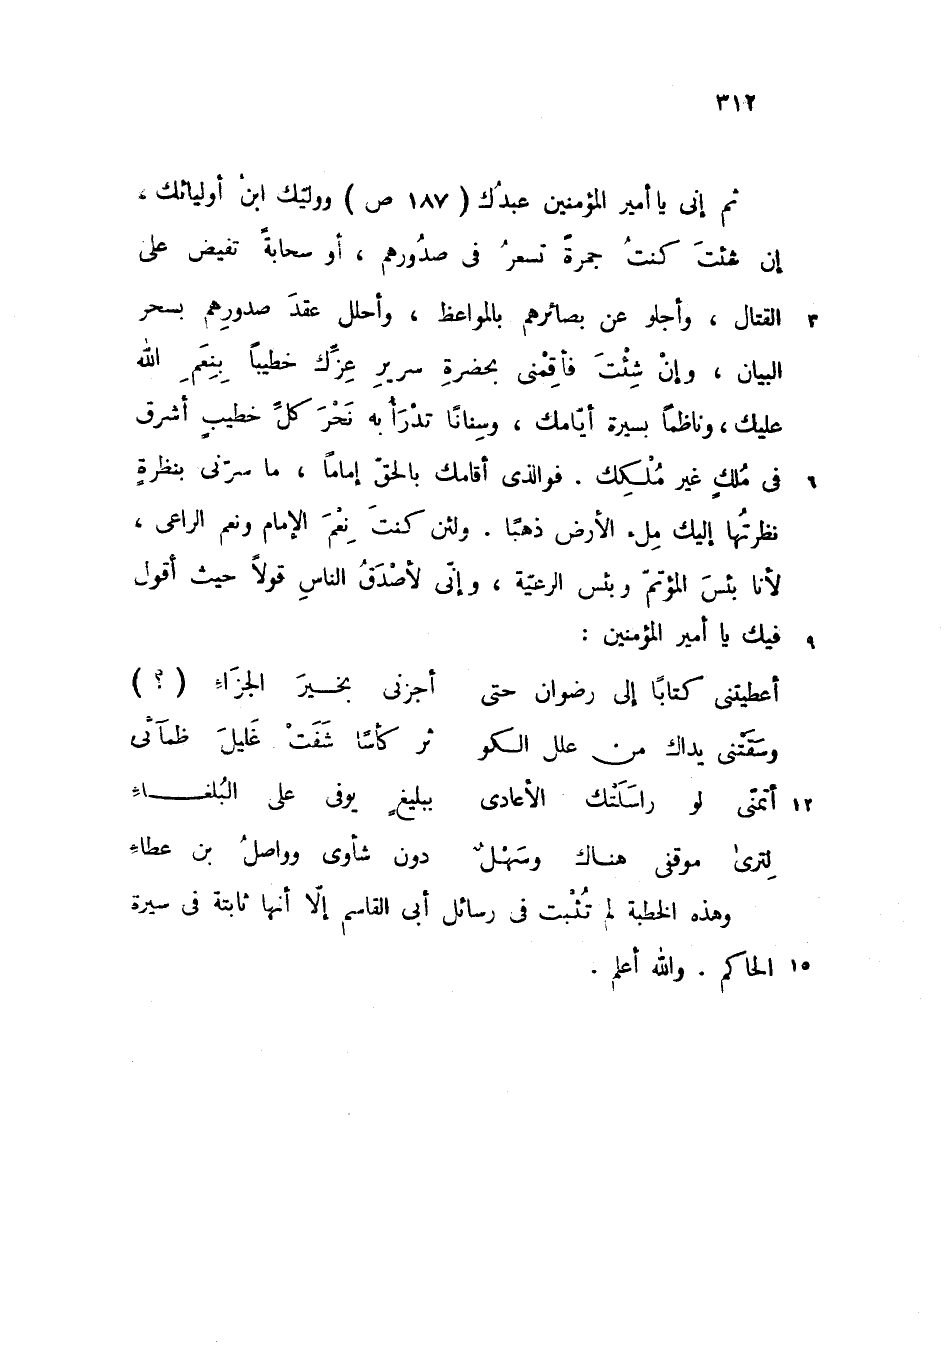 ٣١٢
ثم إنى يا أمير المؤمنين عبدُك ( ١٨٧ ص ) ووليّك ابنُ أوليائك ،
إن شئتَ كنتُ جمرةً تسعرُ فى صدُورهم ، أو سحابةً تفيض على
٣ القتال ، وأجلو عن بصائرهم بالمواعظ ، وأحلل عقدَ صدورِهم بسحر
البيان ، وإنْ شِئْتَ فأقِمْنى بحضرةِ سريرِ عِزّك خطيباً بِنِعَمِ الله
عليك ، وناظماً بسيرة أيّامك ، وسِنانًا تدْرَأُ به نَحْرَ كلِّ خطيبٍ أشرق
٦ فى مُلكٍ غير مُلْكِك . فوالذى أقامك بالحقّ إماماً ، ما سرّنى بنظرةٍ
نظرتُها إليك مِلء الأرض ذهبًا . ولئن كنتَ نِعْمَ الإمام ونعم الراعى ،
لأنا بئسَ المؤتمّ وبئس الرعيّة ، وإنّى لأصْدَقُ الناسِ قولاً حيث أقول
٩ فيك يا أمير المؤمنين :
أعطيتنى كتابًا إلى رضوان حتى أجزنى بخيرَ الجزَاءِ ( ؟ )
وسَقَتْنى يداك من علل الكو ثر كأسًا شَفَتْ غَليلَ ظمآنى
١٢ أتمنّى لو راسَلَتْك الأعادى ببليغٍ يوفى على البُلغاءِ
لِترىٰ موقفى هناك وسَهْلٌ دون شأوى وواصلُ بن عطاء
وهذه الخطبة لم تُثْبت فى رسائل أبى القاسم إلّا أنها ثابتة فى سيرة
١٥ الحاكم . والله أعلم .